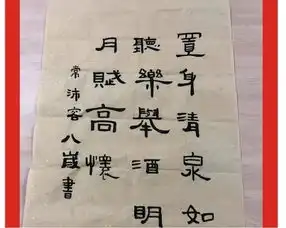 置身清泉如
聽樂舉酒明
月賦高懷
常沛客八歲書